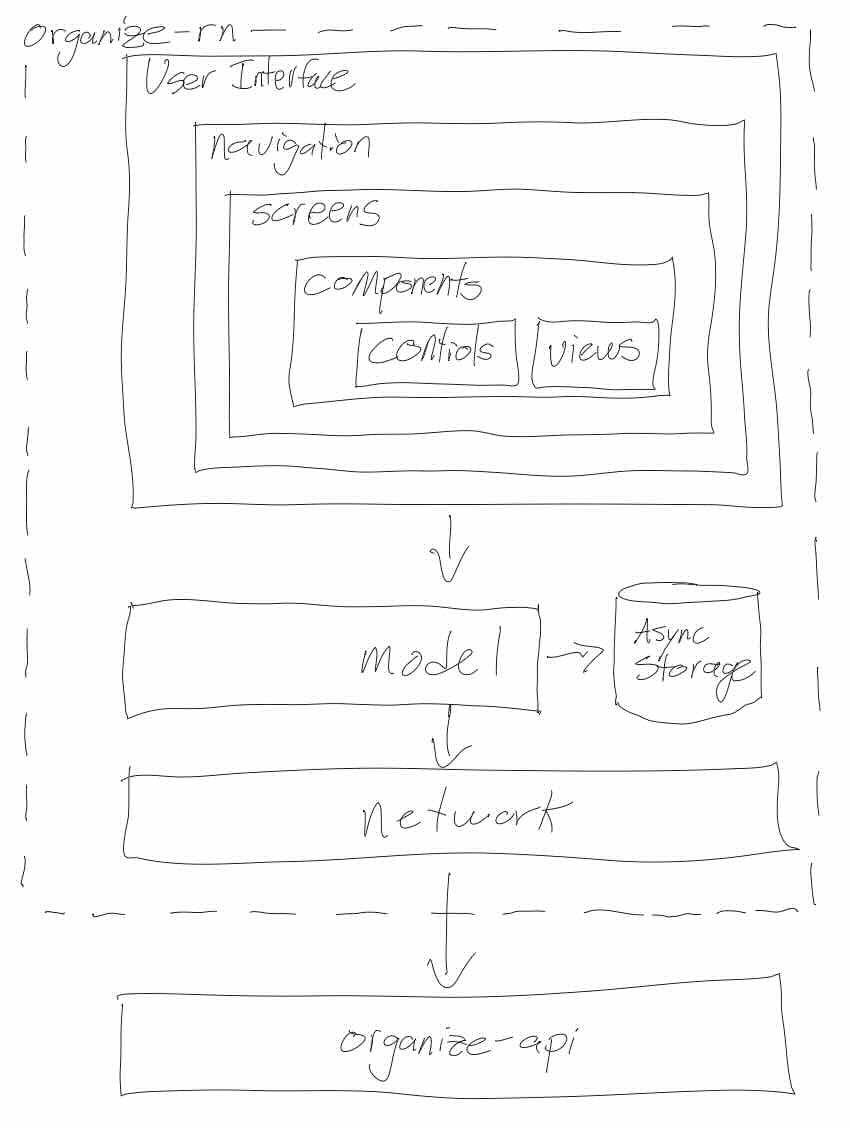 organize-rn
User Interface
navigation
screens
components
controls
views
model
Async
Storage
network
organize-api